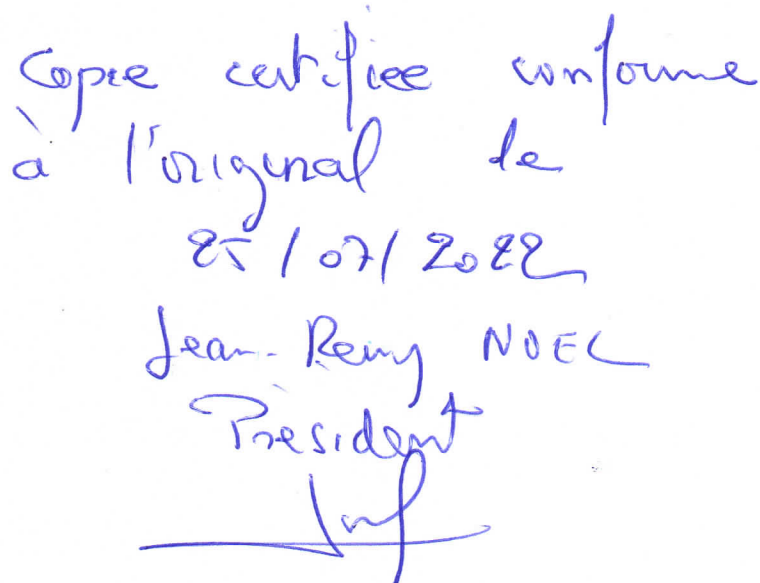 Copie certifiée conforme
à l'original le
25/07/2022
Jean-Remy NOEL
Président